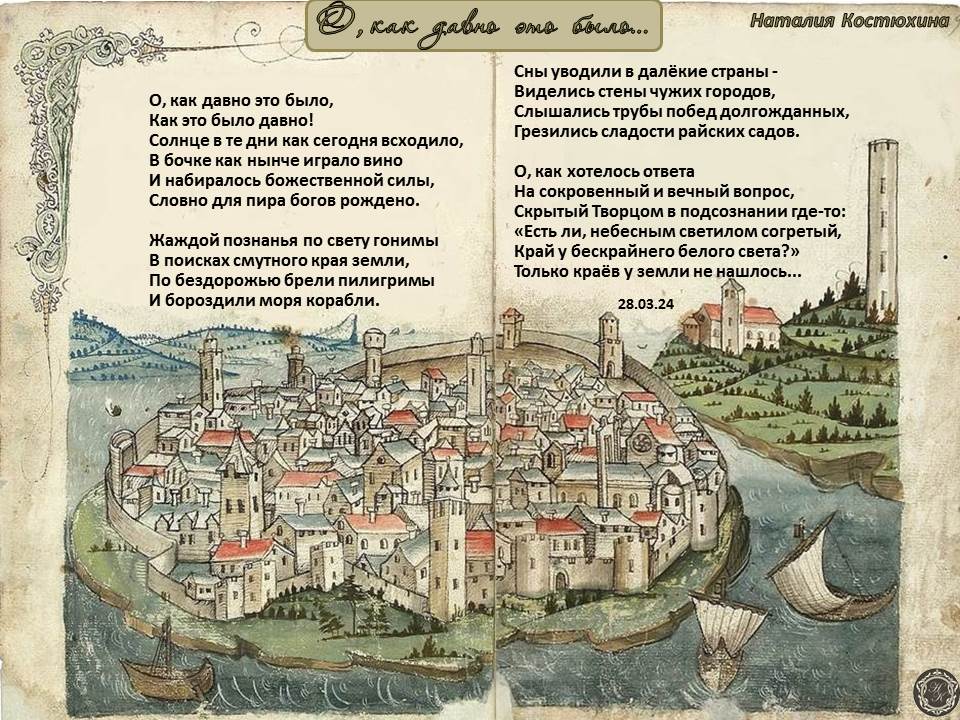 О, как давно это было...
Наталия Костюхина
О, как давно это было,
Как это было давно!
Солнце в те дни как сегодня всходило,
В бочке как нынче играло вино
И набиралось божественной силы,
Словно для пира богов рождено.
Жаждой познанья по свету гонимы
В поисках смутного края земли,
По бездорожью брели пилигримы
И бороздили моря корабли.
Сны уводили в далёкие страны -
Виделись стены чужих городов,
Слышались трубы побед долгожданных,
Грезились сладости райских садов.
О, как хотелось ответа
На сокровенный и вечный вопрос,
Скрытый Творцом в подсознании где-то:
«Есть ли, небесным светилом согретый,
Край у бескрайнего белого света?»
Только краёв у земли не нашлось...
28.03.24